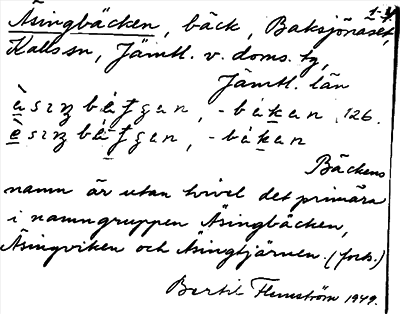 1-4
Äsingbäcken, bäck, Baksjönäset,
Kalls sn, Jämtl. v. doms. tg,
Jämtl. län
-bȧkan 126.
-bȧkan
Bäckens
namn är utan tvivel det primära
i namngruppen Äsingbäcken,
Äsingviken och Äsingtjärnen. (forts.)
Bertil Flemström 1949.